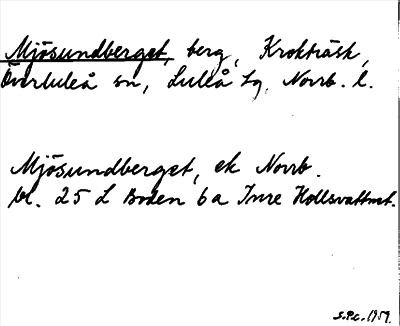 Mjösundberget, berg, Krokträsk,
Överluleå sn, Luleå tg, Norrb. l.
Mjösundberget, ek Norrb.
bl. 25 L Boden 6a Inre Hollsvattnet.
S.P.C. 1959.